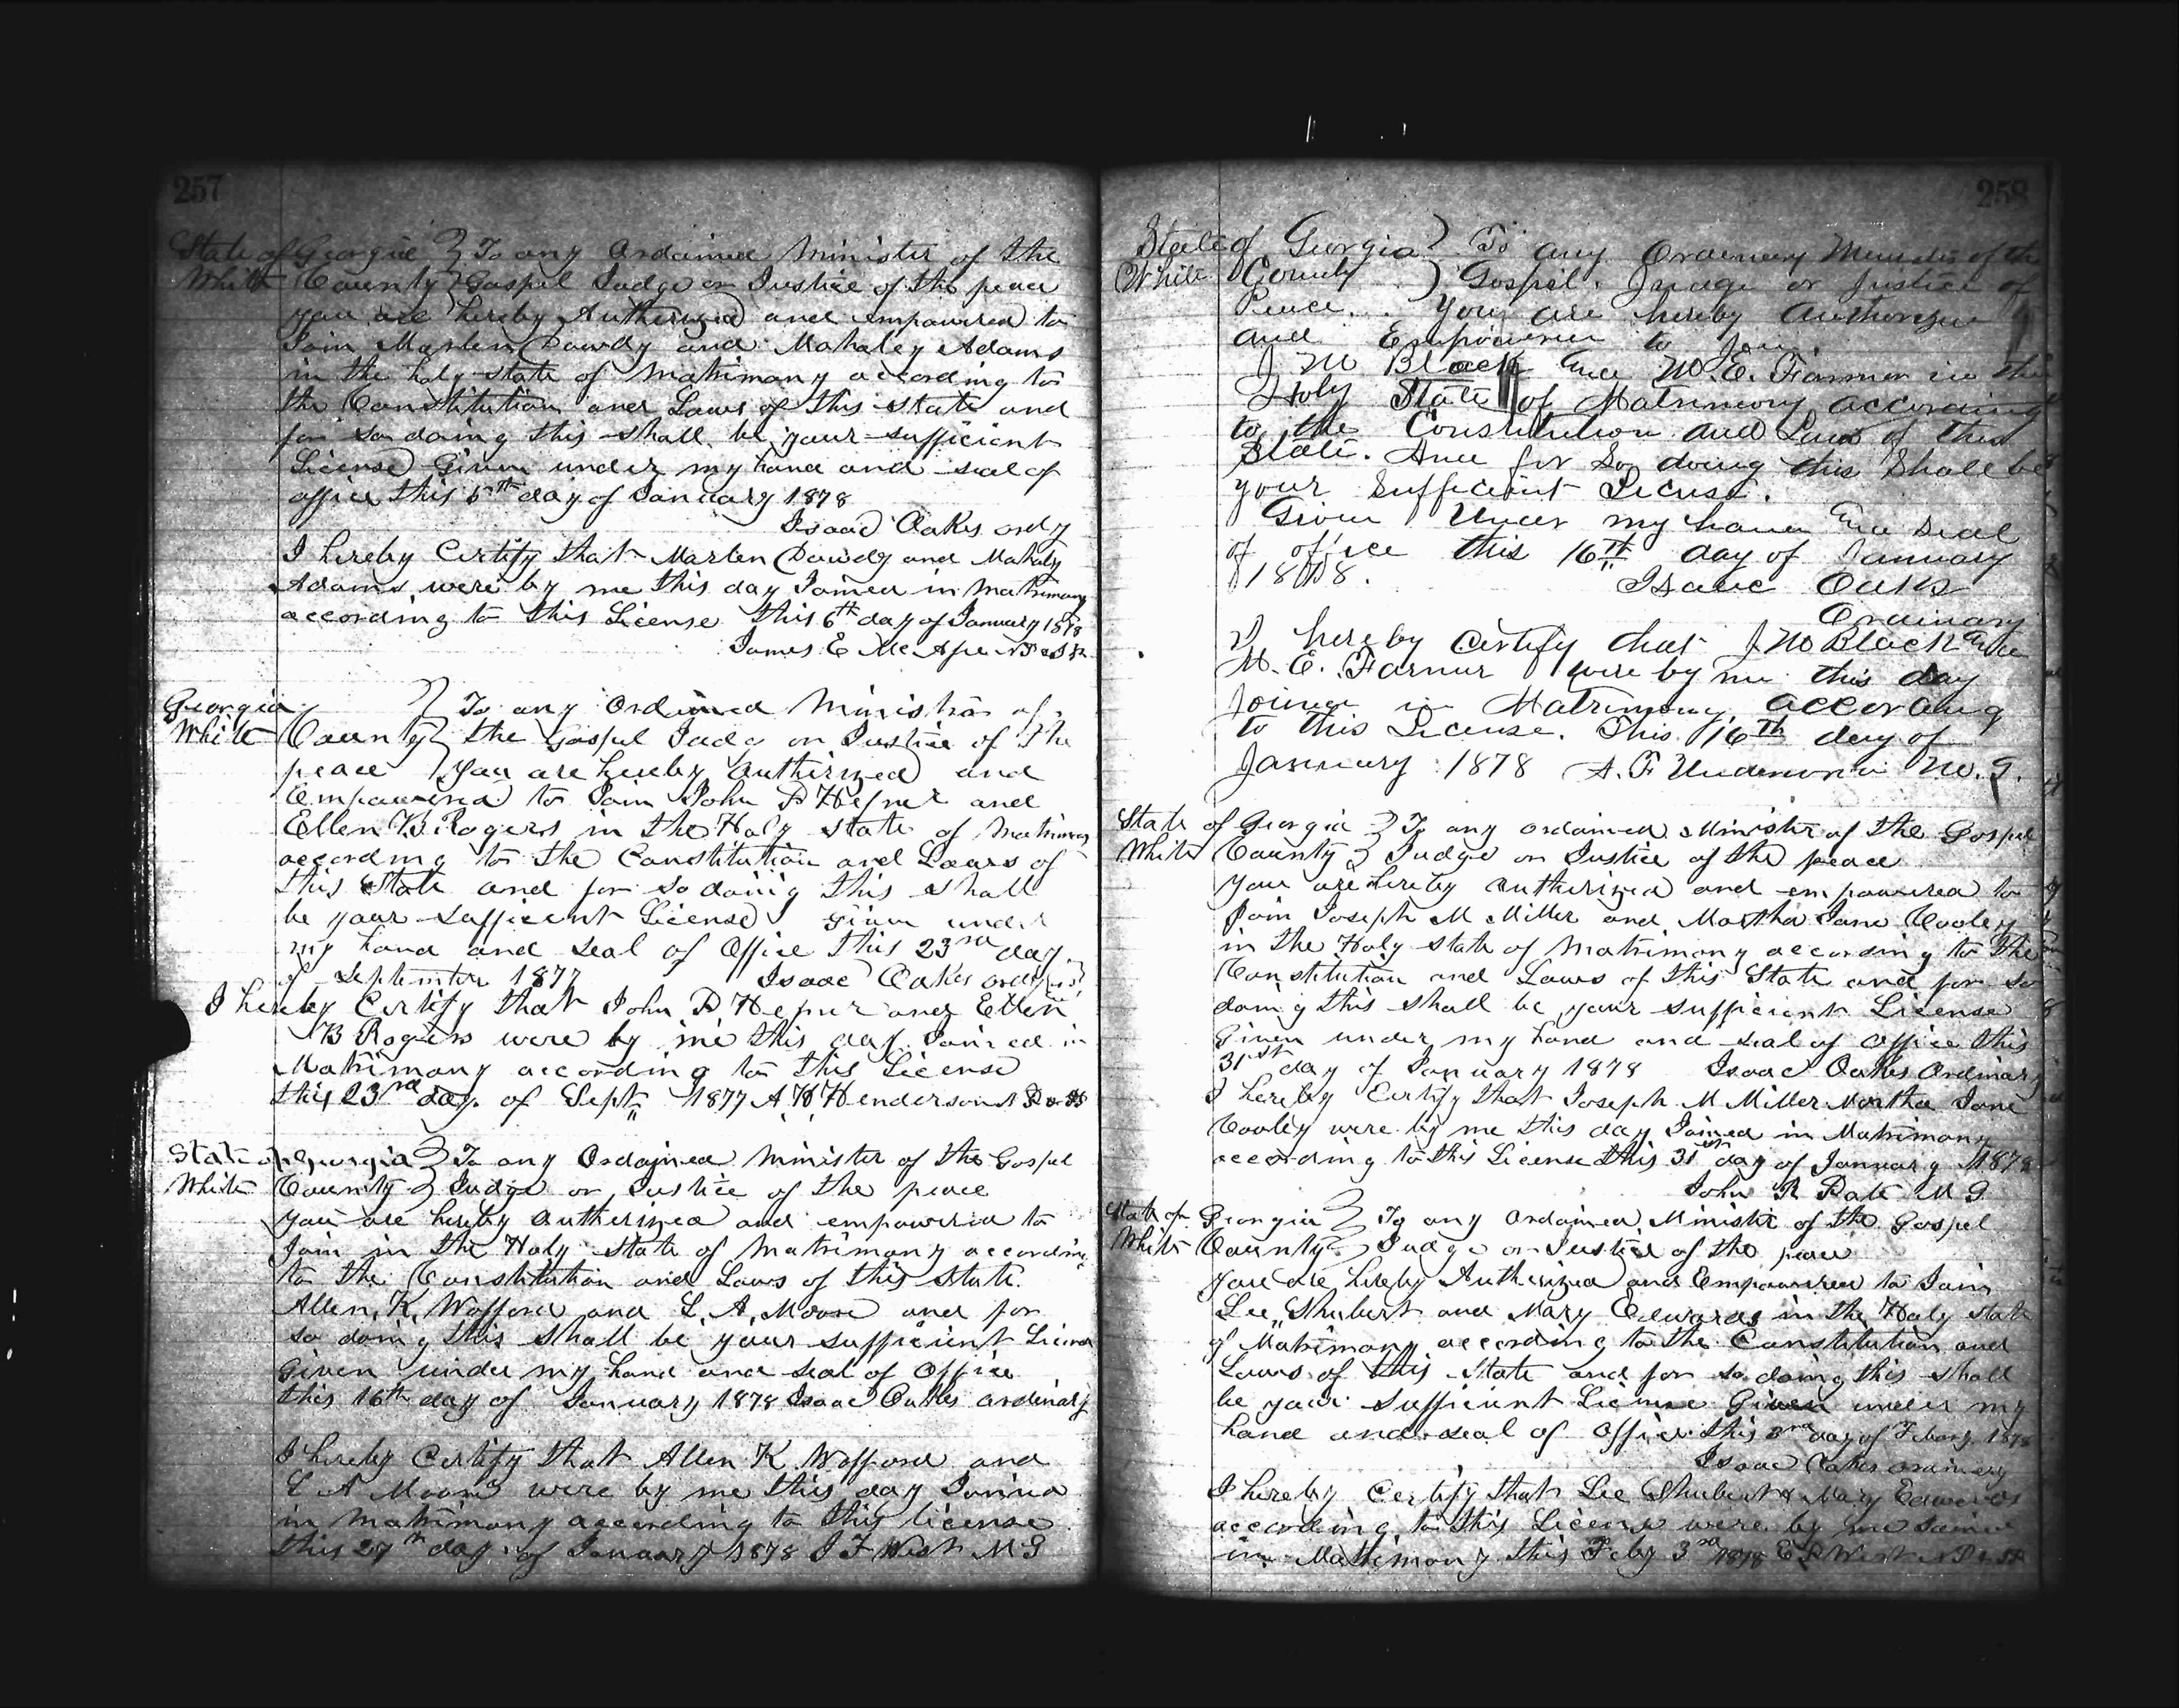 257
State of Georgia } To any Ordained Minister of the
White County } Gospel Judge or Justice of the peace
you are hereby Authorized and empowered to
Join Marlen Dowdy and Mahaley Adams
in the holy state of Matrimony according to
the Constitution and Laws of this state and
for so doing this shall be your sufficient
License Given under my hand and seal of
office this 5th day of January 1878
Isaac Oakes ordy
I hereby Certify that Marlen Dowdy and Mahaly
Adams were by me this day Joined in Matrimony
according to this License this 6th day of January 1878
James E
Georgia } To any Ordained Minister of
White County } the Gospel Judg or Justice of the
peace You are hereby Authorized and
Empowered to Join John and
Ellen B Rogers in the Holy state of Matrimony
according to the Constitution and Laws of
this State and for so doing this shall
be your sufficient License given under
my hand and seal of Office this 23rd day
of September 1877 Isaac Oakes
I hereby Certify that John and Ellen
B Rogers were by me this day Joined in
Matrimony according to this License
this 23rd day of Sept 1877 A H Henderson
State of Georgia } To any Ordained Minister of the Gospel
White County } Judge or Justice of the peace
You are hereby authorized and empowered to
Join in the Holy State of Matrimony according
to the Constitution and Laws of this State
Allen, K, Wofford and L, A, Moore and for
so doing this shall be your sufficient License
Given under my hand and seal of Office
this 16th day of January 1878 Isaac Oakes ordinary
I hereby Certify that Allen K Wofford and
L A Moore were by me this day Joined
in Matrimony according to this license
this 27th day of January 1878 J F West M G
258
State of Georgia } To any Ordinary Minister of the
White County } Gospel. Judge or Justice of
Peace. You are hereby Authorized
and Empowered to Join
J M Black and M. E. Farmer in the
Holy State of Matrimony according
to the Constitution and Laws of this
State. And for So doing this Shall be
your Sufficient License.
Given Under my hand and Seal
of office this 16th day of January
Isaac Oaks
Ordinary
I hereby Certify that J M Black and
M. E. Farmer were by me this day
Joined in Matrimony according
to this License. This 16th day of
January 1878 A. F Underwood M. G.
State of Georgia } To any ordained Minister of the Gospel
White County } Judge or Justice of the peace
You are hereby authorized and empowered to
Join Joseph M Miller and Martha Jane Cooley
in the Holy state of Matrimony according to the
Constitution and Laws of this State and for so
doing this shall be your sufficient License
Given under my hand and seal of office this
31st day of January 1878 Isaac Oakes Ordinary
I hereby Certify that Joseph M Miller Martha Jane
Cooley were by me this day Joined in Matrimony
according to this License this 31st day of January 1878
John R M G
State of Georgia } To any Ordained Minister of the Gospel
White County } Judge or Justice of the peace
You are hereby Authorized and Empowered to Join
Lee Shubert and Mary Edwards in the Holy state
of Matrimony according to the Constitution and
Laws of this State and for so doing this shall
be your sufficient License Given under my
hand and seal of Office this 3rd day of Febuary 1878
Isaac Oakes ordinary
I hereby Certify that Lee Shubert & Mary Edwards
according to this License were by me Joined
in Matrimony this Feby 3rd 1878 E West